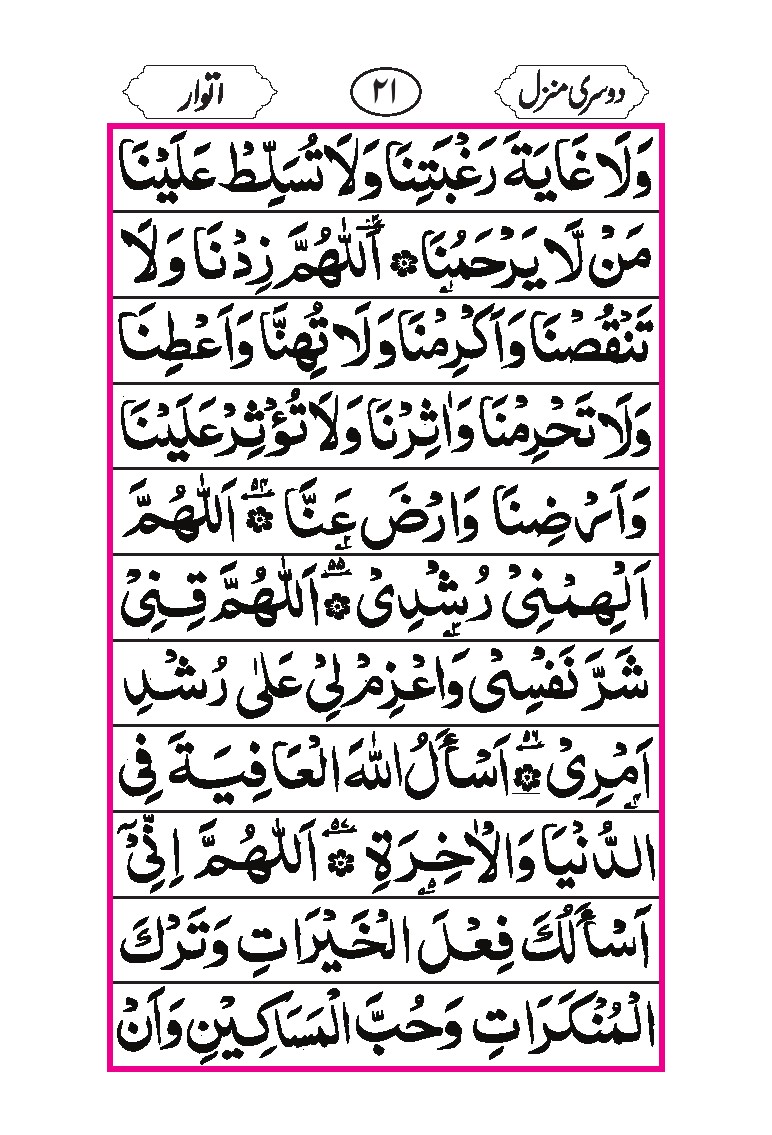 دوسری منزل ۲۱ اتوار
وَلَا غَايَةَ رَغْبَتِنَا وَلَا تُسَلِّطْ عَلَيْنَا
مَنْ لَّا يَرْحَمُنَا ۞ اَللّٰهُمَّ زِدْنَا وَلَا
تَنْقُصْنَا وَاَكْرِمْنَا وَلَا تُهِنَّا وَاَعْطِنَا
وَلَا تَحْرِمْنَا وَاٰثِرْنَا وَلَا تُؤْثِرْ عَلَيْنَا
وَاَرْضِنَا وَارْضَ عَنَّا ۞ اَللّٰهُمَّ
اَلْهِمْنِيْ رُشْدِيْ ۞ ۵۵ اَللّٰهُمَّ قِنِيْ
شَرَّ نَفْسِيْ وَاعْزِمْ لِيْ عَلٰى رُشْدِ
اَمْرِيْ ۞ ۵۶ اَسْأَلُ اللّٰهَ الْعَافِيَةَ فِي
الدُّنْيَا وَالْاٰخِرَةِ ۞ ۵۷ اَللّٰهُمَّ اِنِّيْٓ
اَسْأَلُكَ فِعْلَ الْخَيْرَاتِ وَتَرْكَ
الْمُنْكَرَاتِ وَحُبَّ الْمَسَاكِيْنِ وَاَنْ